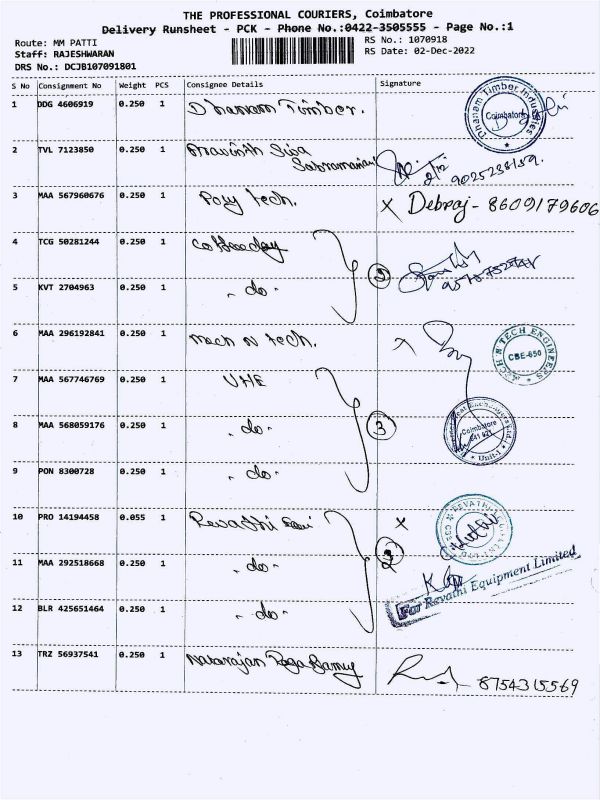 THE PROFESSIONAL COURIERS, Coimbatore
Delivery Runsheet - PCK - Phone No.:0422-3505555 - Page No.:1
Route: MM PATTI
RS No.: 1070918
Staff: RAJESHWARAN
RS Date: 02-Dec-2022
DRS No.: DCJB107091801
S No Consignment No Weight PCS Consignee Details Signature
1 DDG 4606919 0.250 1 Dhanam Timber.
Dhanam Timber Industries
Coimbatore
2 TVL 7123850 0.250 1 Siva
Subramanian
2/12
9025238159.
3 MAA 567960676 0.250 1 Poly tech. X Debraj - 8609179606
4 TCG 50281244 0.250 1 Coffeeday
5 KVT 2704963 0.250 1 - do -
6 MAA 296192841 0.250 1 Mech N tech. X
MECH N TECH ENGINEERS
CBE-650
7 MAA 567746769 0.250 1 UHE
8 MAA 568059176 0.250 1 - do - 3
Coimbatore
641 021
Unit-I
9 PON 8300728 0.250 1 - do -
10 PRO 14194458 0.055 1 Revathi X
11 MAA 292518668 0.250 1 - do - 3
For Revathi Equipment Limited
12 BLR 425651464 0.250 1 - do -
13 TRZ 56937541 0.250 1 Natarajan 8754315569